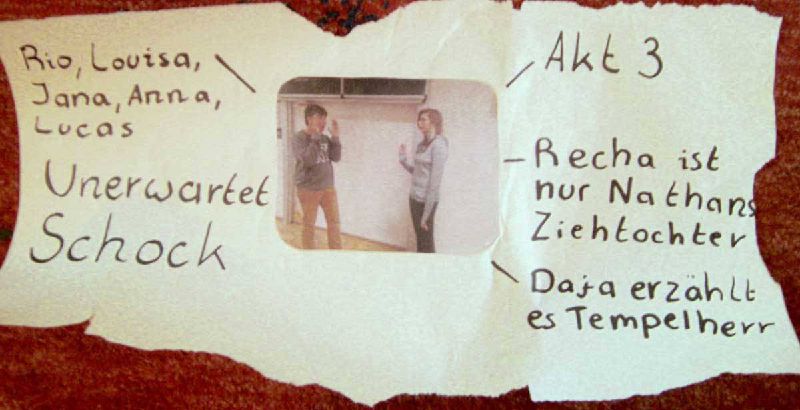 Rio, Louisa,
Jana, Anna,
Lucas
Unerwartet
Schock
Akt 3
Recha ist
nur Nathans
Ziehtochter
Daja erzählt
es Tempelherr